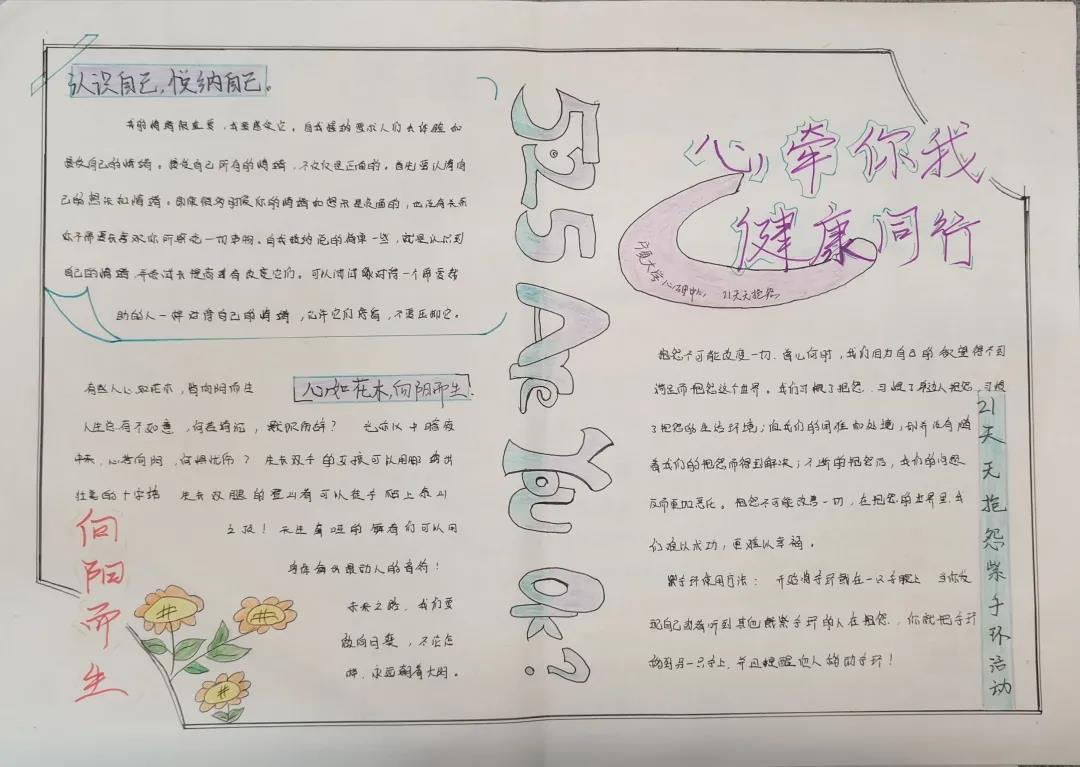 认识自己,悦纳自己。
我的情绪很重要,我要感受它。自我接纳要求人们去体验和
接受自己的情绪。接受自己所有的情绪,不仅仅是正面的。首先要认清自
己的想法和情绪。即使很多时候你的情绪和想法是负面的,也没有关系
你不需要去喜欢你所察觉一切事物。自我接纳
自己的情绪,并尝试去 改变它们。可以试试像对待一个需要帮
助的人一样对待自己的情绪,允许它们存在,不要压抑它。
心如花木,向阳而生!
有些人心如花木,皆向阳而生
人生总有不如意,何苦
心若向阳,何惧忧伤?失去双手的女孩可以用脚绣出
壮美的十字绣 失去双腿的登山者可以徒手爬上泰山
之顶!天生聋哑的舞者们可以用
身体舞出最动人的音符!
未来之路,我们要
做向日葵,不论怎
样,永远朝着太阳。
向阳而生
525 Are You Ok?
心牵你我
健康同行
宁夏大学心研中心,21天无抱怨
抱怨不可能改变一切。曾几何时,我们因为自己的欲望得不到
满足而抱怨这个世界。我们习惯了抱怨,习惯了身边人抱怨,习惯
了抱怨的生活环境;但我们的困难和处境,却并没有随
着我们的抱怨而得到解决;不断的抱怨后,我们的问题
反而更加恶化。抱怨不可能改善一切,在抱怨的世界里,我
们难以成功,更难以幸福。
紫手环使用方法:开始将手环戴在一只手腕上 当你发
现自己或者听到其他戴紫手环的人在抱怨,你就把手环
换到另一只手上,并且提醒他人移动手环!
21天无抱怨紫手环活动